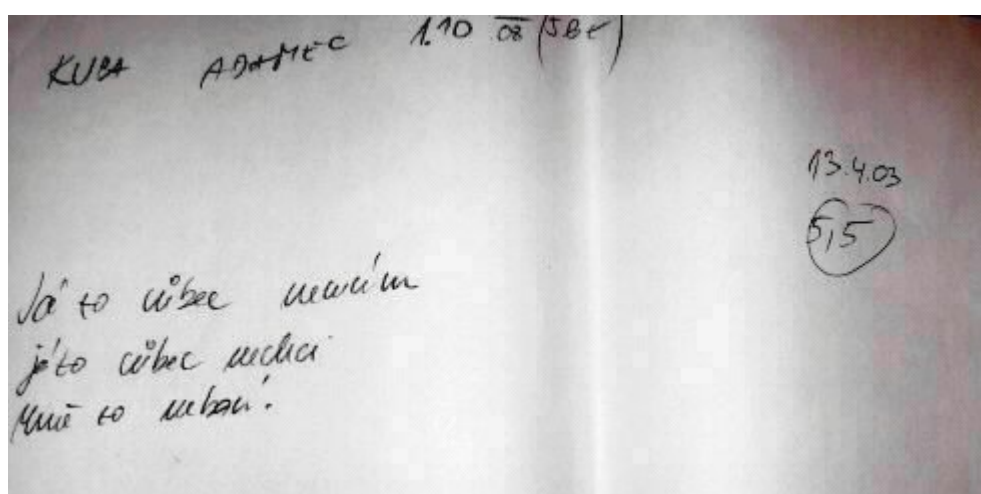 KUBA ADAMEC 1.10
13.4.03
5,5
Já to vůbec
já to vůbec nechci
Mně to nebaví.